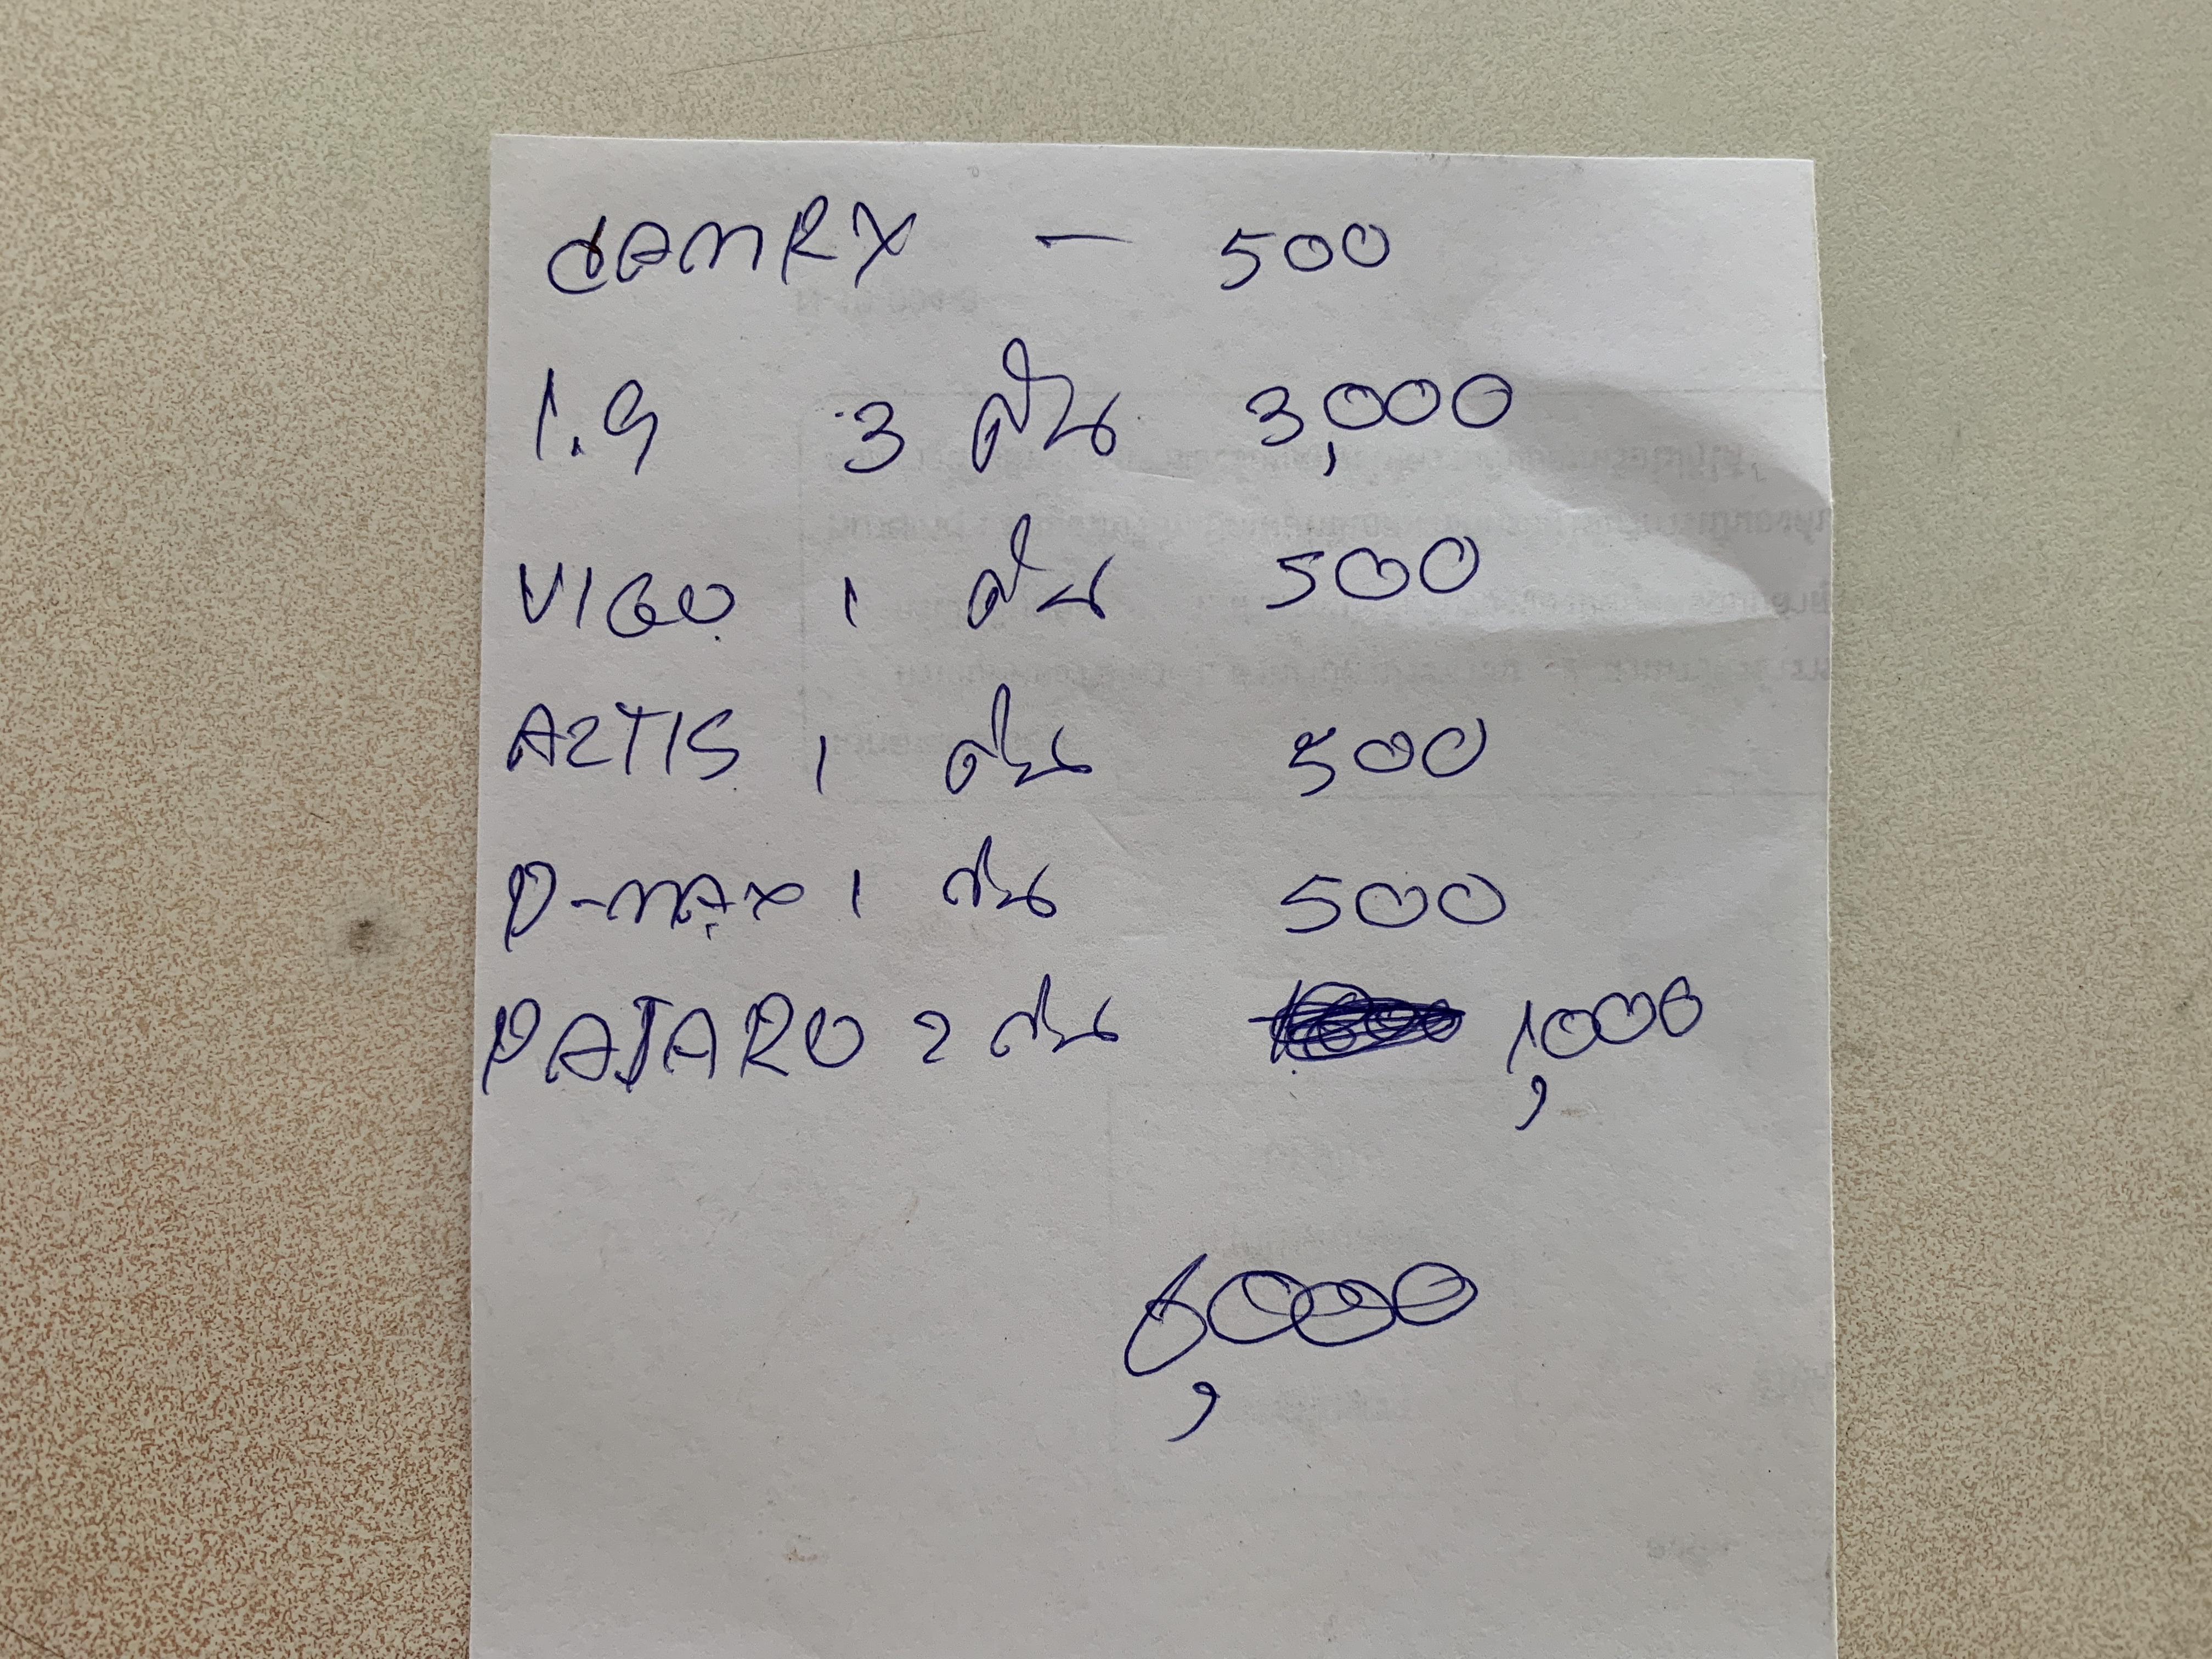 CAMRY - 500
1.9 3 คัน 3,000
VIGO 1 คัน 500
A2TIS 1 คัน 500
D-MAX 1 คัน 500
PAJARO 2 คัน 1,000
6,000